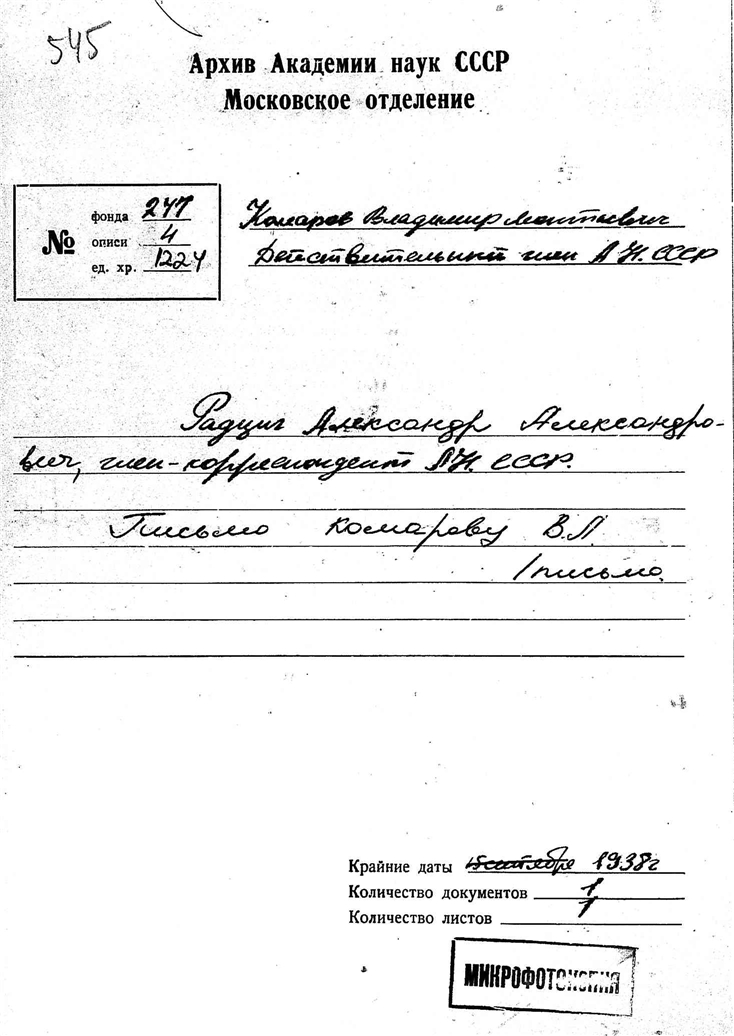 545
Архив Академии наук СССР
Московское отделение
№
фонда 277
описи 4
ед. хр. 1224
Комаров Владимир Леонтьевич
Действительный член АН.СССР
Радциг Александр Александро-
вич, член-корреспондент АН. СССР.
Письмо Комарову В.Л.
1 письмо.
Крайние даты сентября 1938г
Количество документов 1
Количество листов 1
МИКРОФОТОКОПИЯ